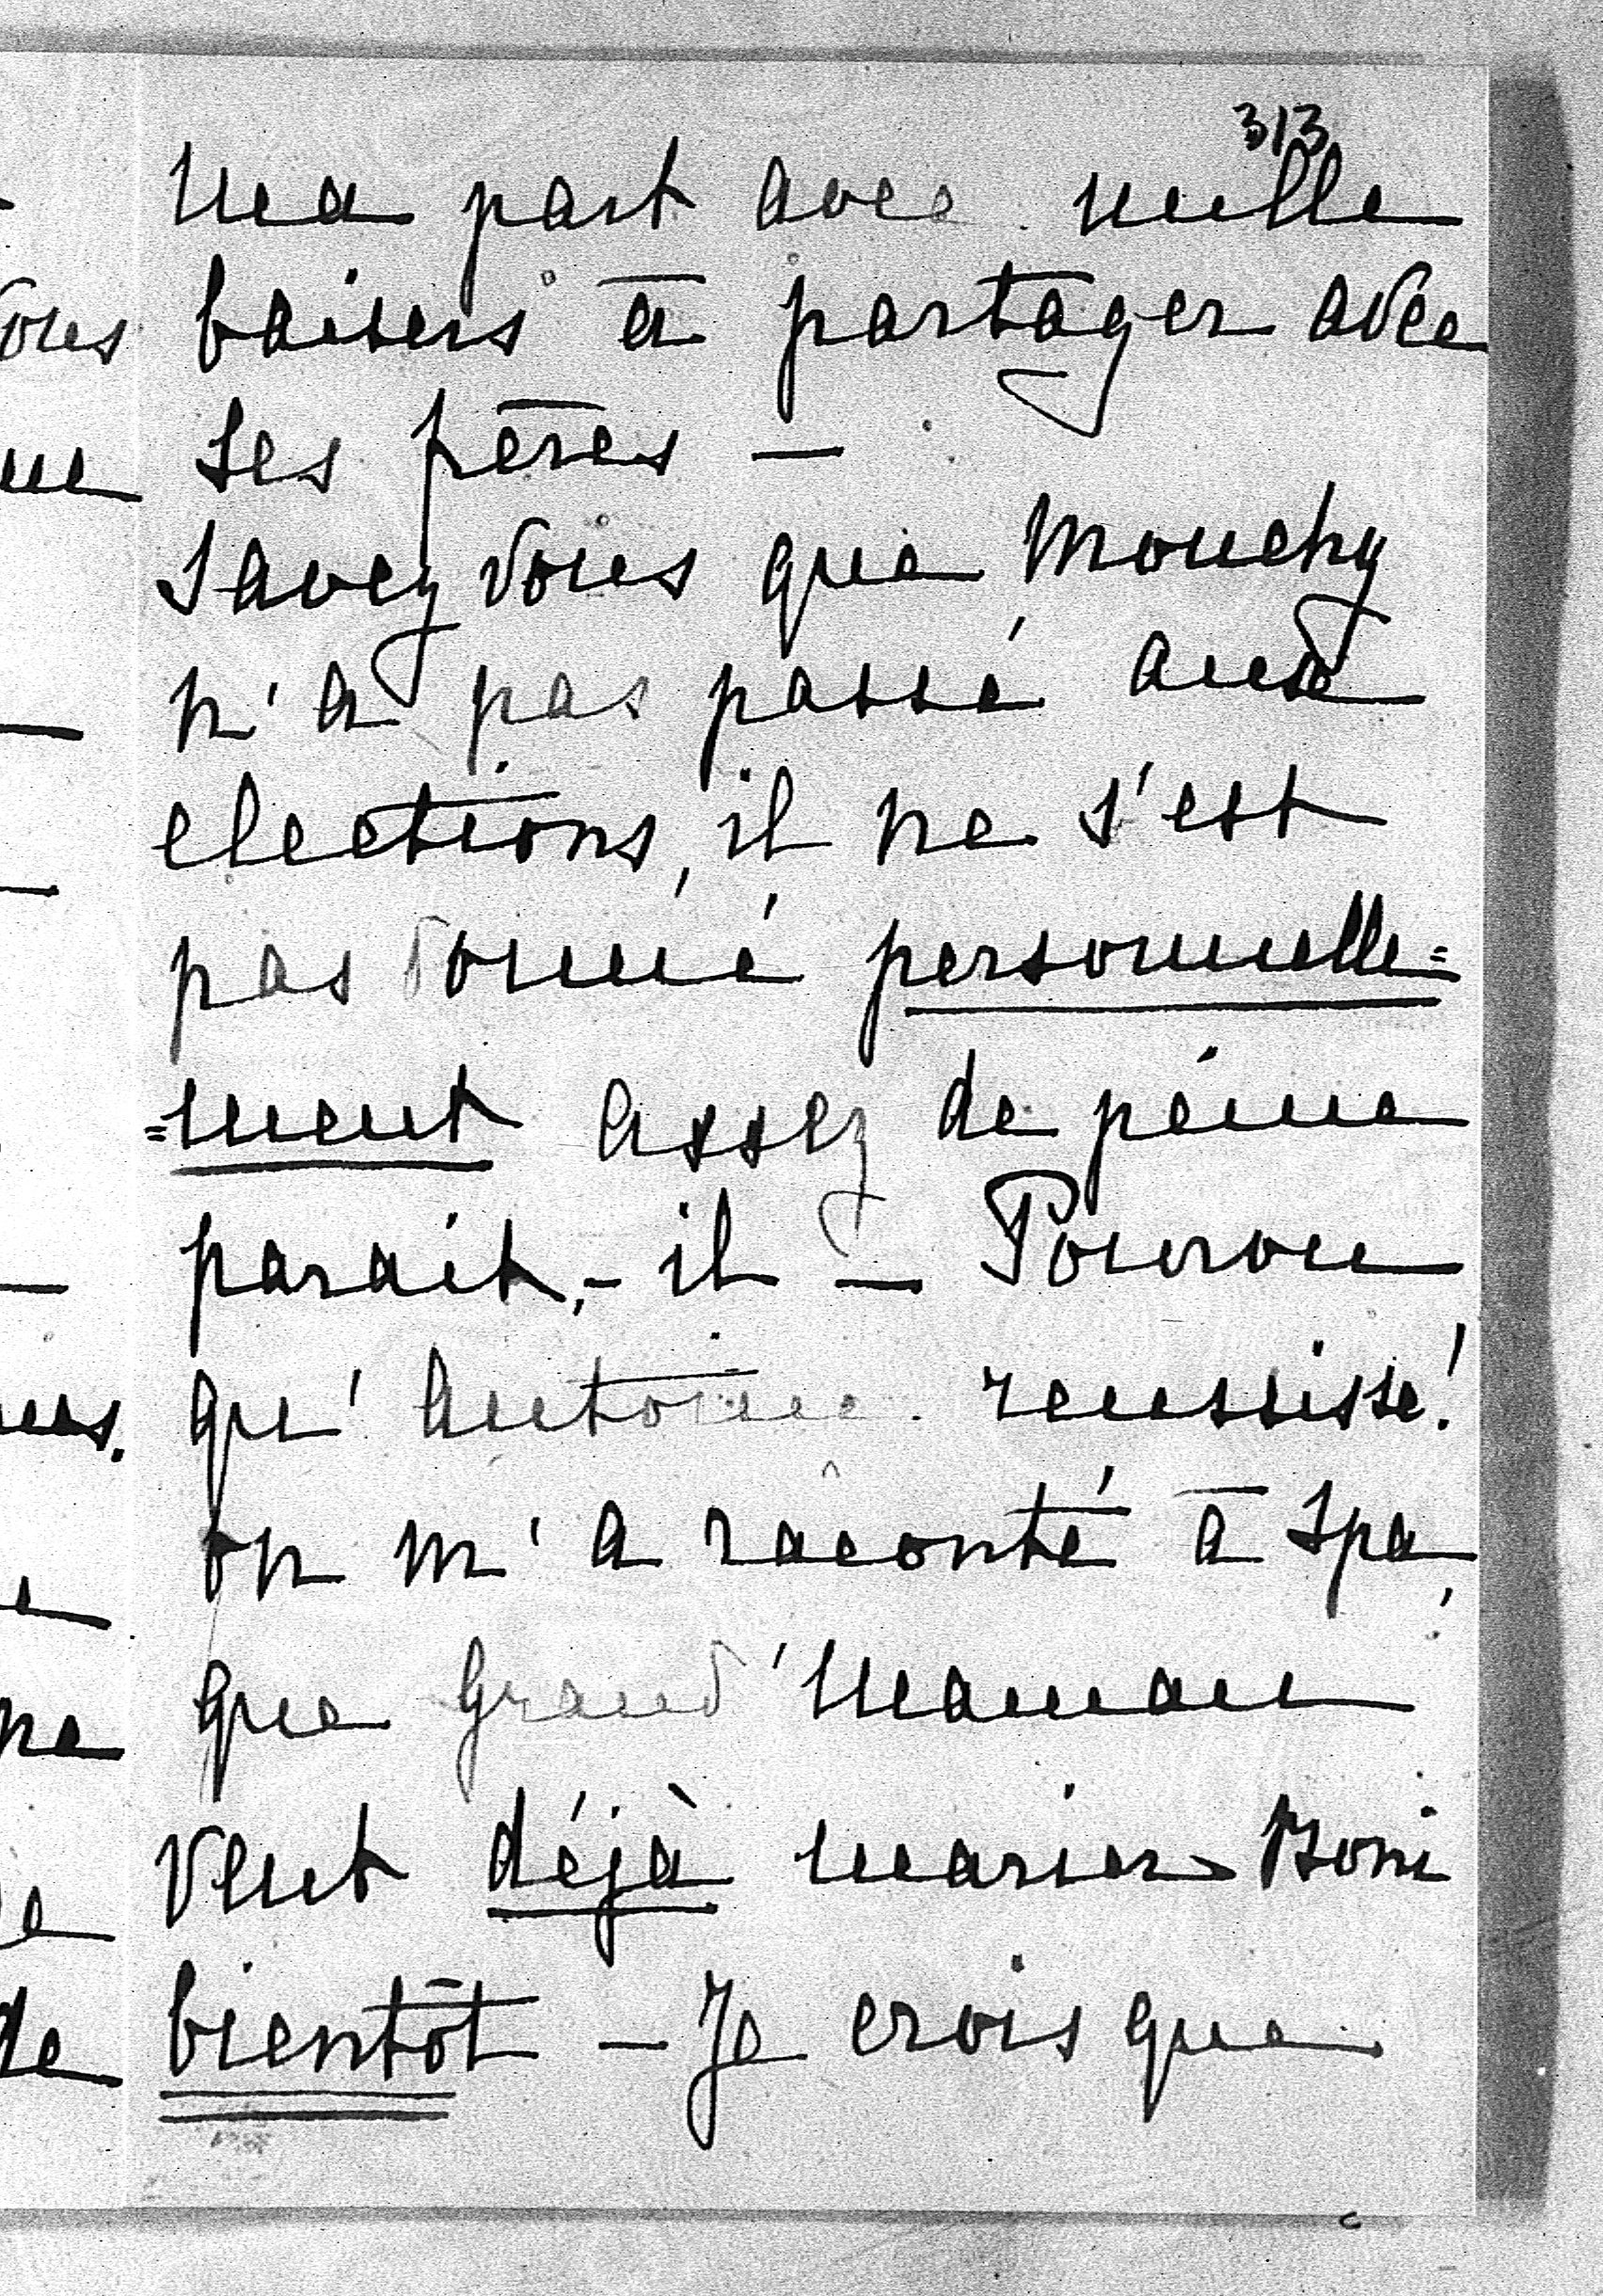 313
Ma part avec mille
baisers à partager avec
ses frères —
Savez vous que Mouchy
n'a pas passé aux
elections, il ne s'est
pas donné personnelle=
=ment assez de peine
parait,- il — Pourvu
qu'Antoine reussisse!
on m'a raconté à Spa,
que Grand'Maman
veut déjà marier Boni
bientôt — Je crois que